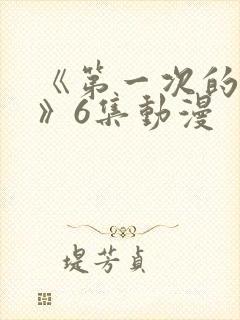 《第一次的
》6集動漫
堤芳貞